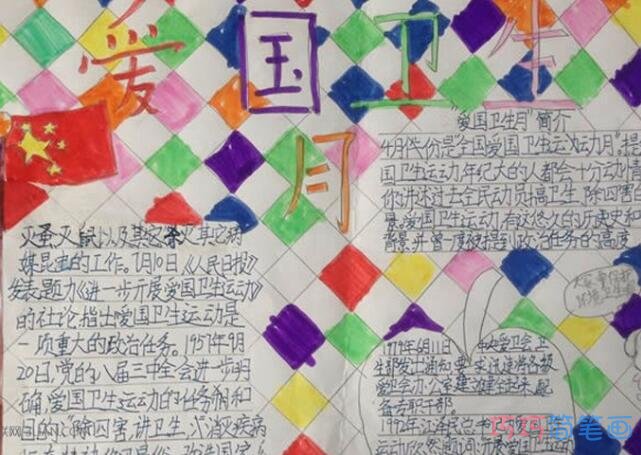 爱国卫生
月
"爱国卫生月"简介
4月份是"全国爱国卫生运动月"提
国卫生运动年纪大的人都会十分动
你讲述过去全民动员搞卫生除四害
景。爱国卫生运动有这悠久的历史
背景,并曾一度被提到政治任务的高度
灭蚤灭鼠以及其它
媒昆虫的工作。7月10日《人民日报》
发表题力《进一步开展爱国卫生运动》
的社论,指出爱国卫生运动是
一项重大的政治任务。1957年9月
20日,党的八届三中全会进一步明
确,爱国卫生运动的任务和
目的"除四害,讲卫生,消灭疾病
1979年6月11日 中央爱卫会卫
生部发出通知要求
爱卫会办公室
备专职干部。
1992年江泽民
巧巧简笔画